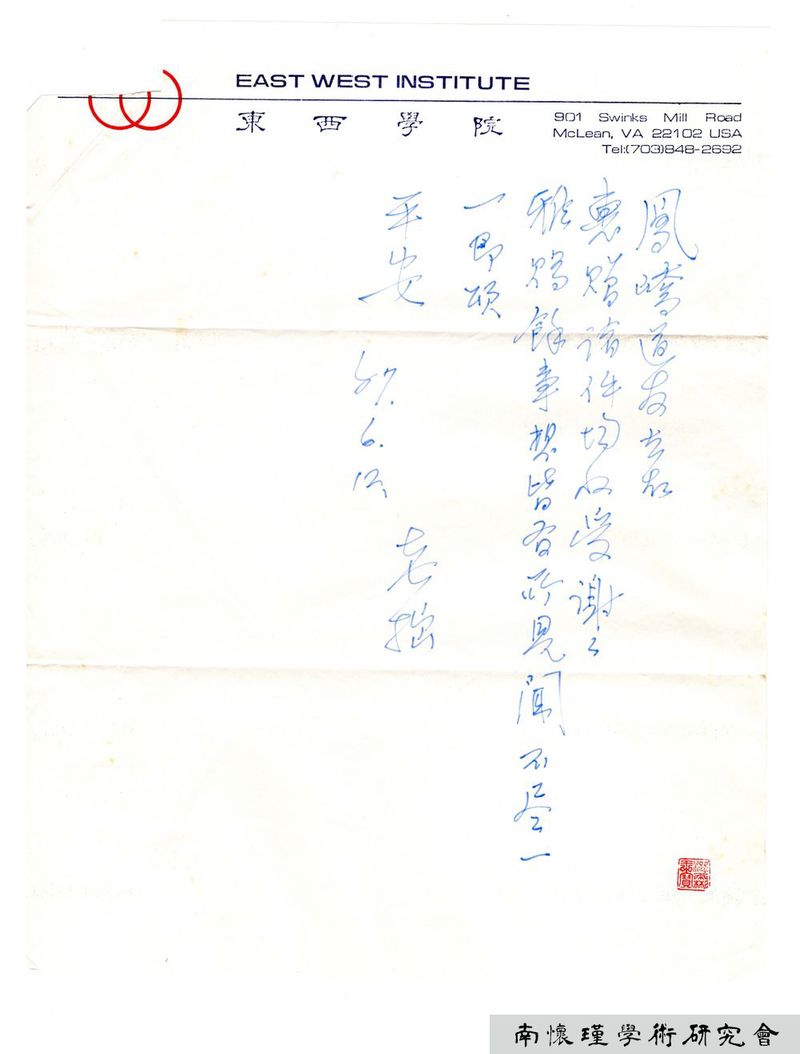 EAST WEST INSTITUTE
東西學院
901 Swinks Mill Road
McLean, VA 22102 USA
Tel:(703)848-2692
鳳嬌道友
惠贈諸件均收受謝々
雅鴻餘事想皆有所見聞不尽一
一即頌
平安
87.6.12.
老拙
南懷瑾學術研究會